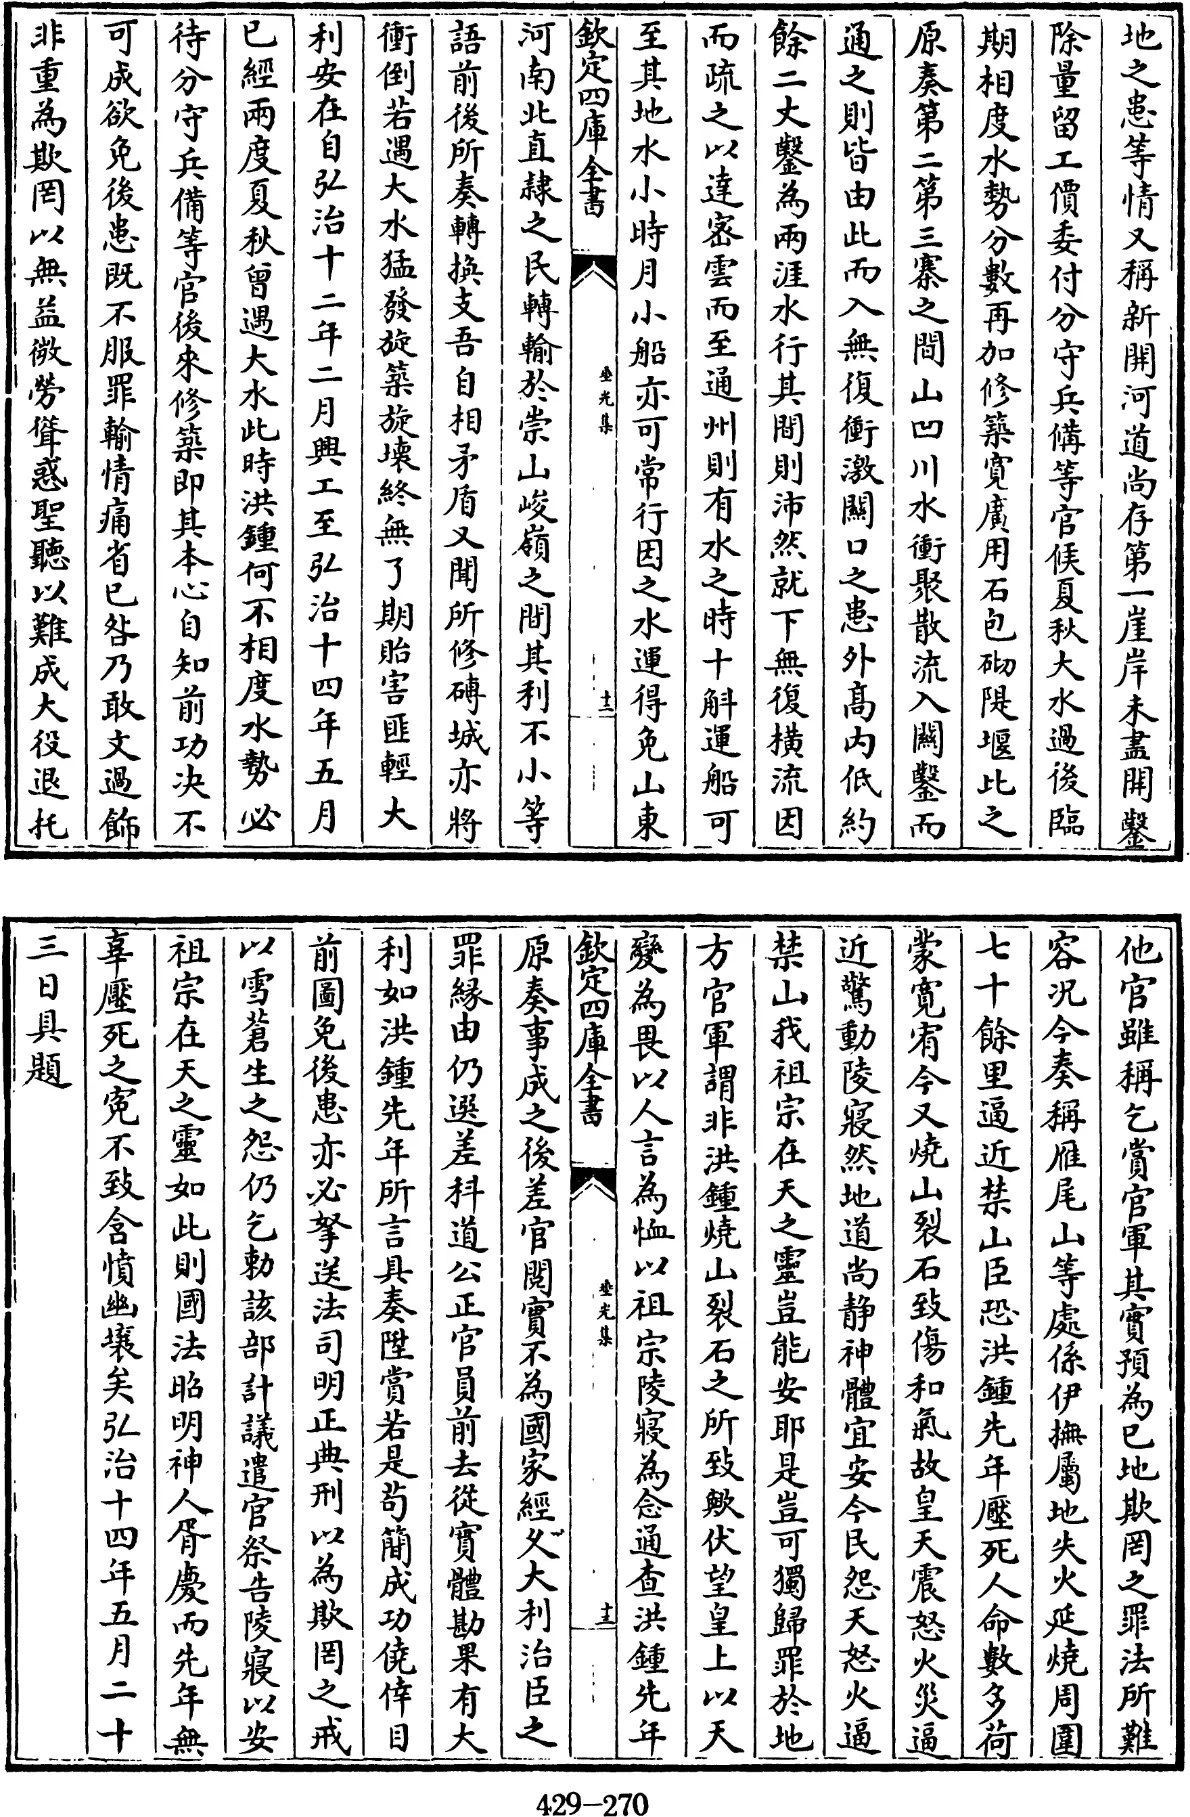 地之患等情又稱新開河道尚存第一崖岸未盡開鑿
除量留工價委付分守兵備等官候夏秋大水過後臨
期相度水勢分數再加修築寬廣用石包砌隄堰此之
原奏第二第三寨之間山凹川水衝聚散流入闗鑿而
通之則皆由此而入無復衝激闗口之患外高内低約
餘二丈鑿為兩涯水行其間則沛然就下無復横流因
而疏之以達密雲而至通州則有水之時十斛運船可
至其地水小時月小船亦可常行因之水運得免山東
欽定四庫全書
垂光集
十二
河南北直隷之民轉輸於崇山峻嶺之間其利不小等
語前後所奏轉換支吾自相矛盾又聞所修磚城亦將
衝倒若遇大水猛發旋築旋壊終無了期貽害匪輕大
利安在自弘治十二年二月興工至弘治十四年五月
已經兩度夏秋曾遇大水此時洪鍾何不相度水勢必
待分守兵備等官後來修築即其本心自知前功决不
可成欲免後患既不服罪輸情痛省已咎乃敢文過飾
非重為欺罔以無益微勞聳惑聖聽以難成大役退托
他官雖稱乞賞官軍其實預為已地欺罔之罪法所難
容况今奏稱雁尾山等處係伊撫屬地失火延燒周圍
七十餘里逼近禁山臣恐洪鍾先年壓死人命數多荷
蒙寛宥今又燒山裂石致傷和氣故皇天震怒火災逼
近驚動陵寢然地道尚静神體宜安今民怨天怒火逼
禁山我祖宗在天之靈豈能安耶是豈可獨歸罪於地
方官軍謂非洪鍾燒山裂石之所致歟伏望皇上以天
變為畏以人言為恤以祖宗陵寢為念通查洪鍾先年
欽定四庫全書
垂光集
十三
原奏事成之後差官閱實不為國家經久大利治臣之
罪縁由仍選差科道公正官員前去從實體勘果有大
利如洪鍾先年所言具奏陞賞若是茍簡成功僥倖目
前圖免後患亦必拏送法司明正典刑以為欺罔之戒
以雪蒼生之怨仍乞勅該部計議遣官祭告陵寢以安
祖宗在天之靈如此則國法昭明神人胥慶而先年無
辜壓死之寃不致含憤幽壤矣弘治十四年五月二十
三日具題
429-270